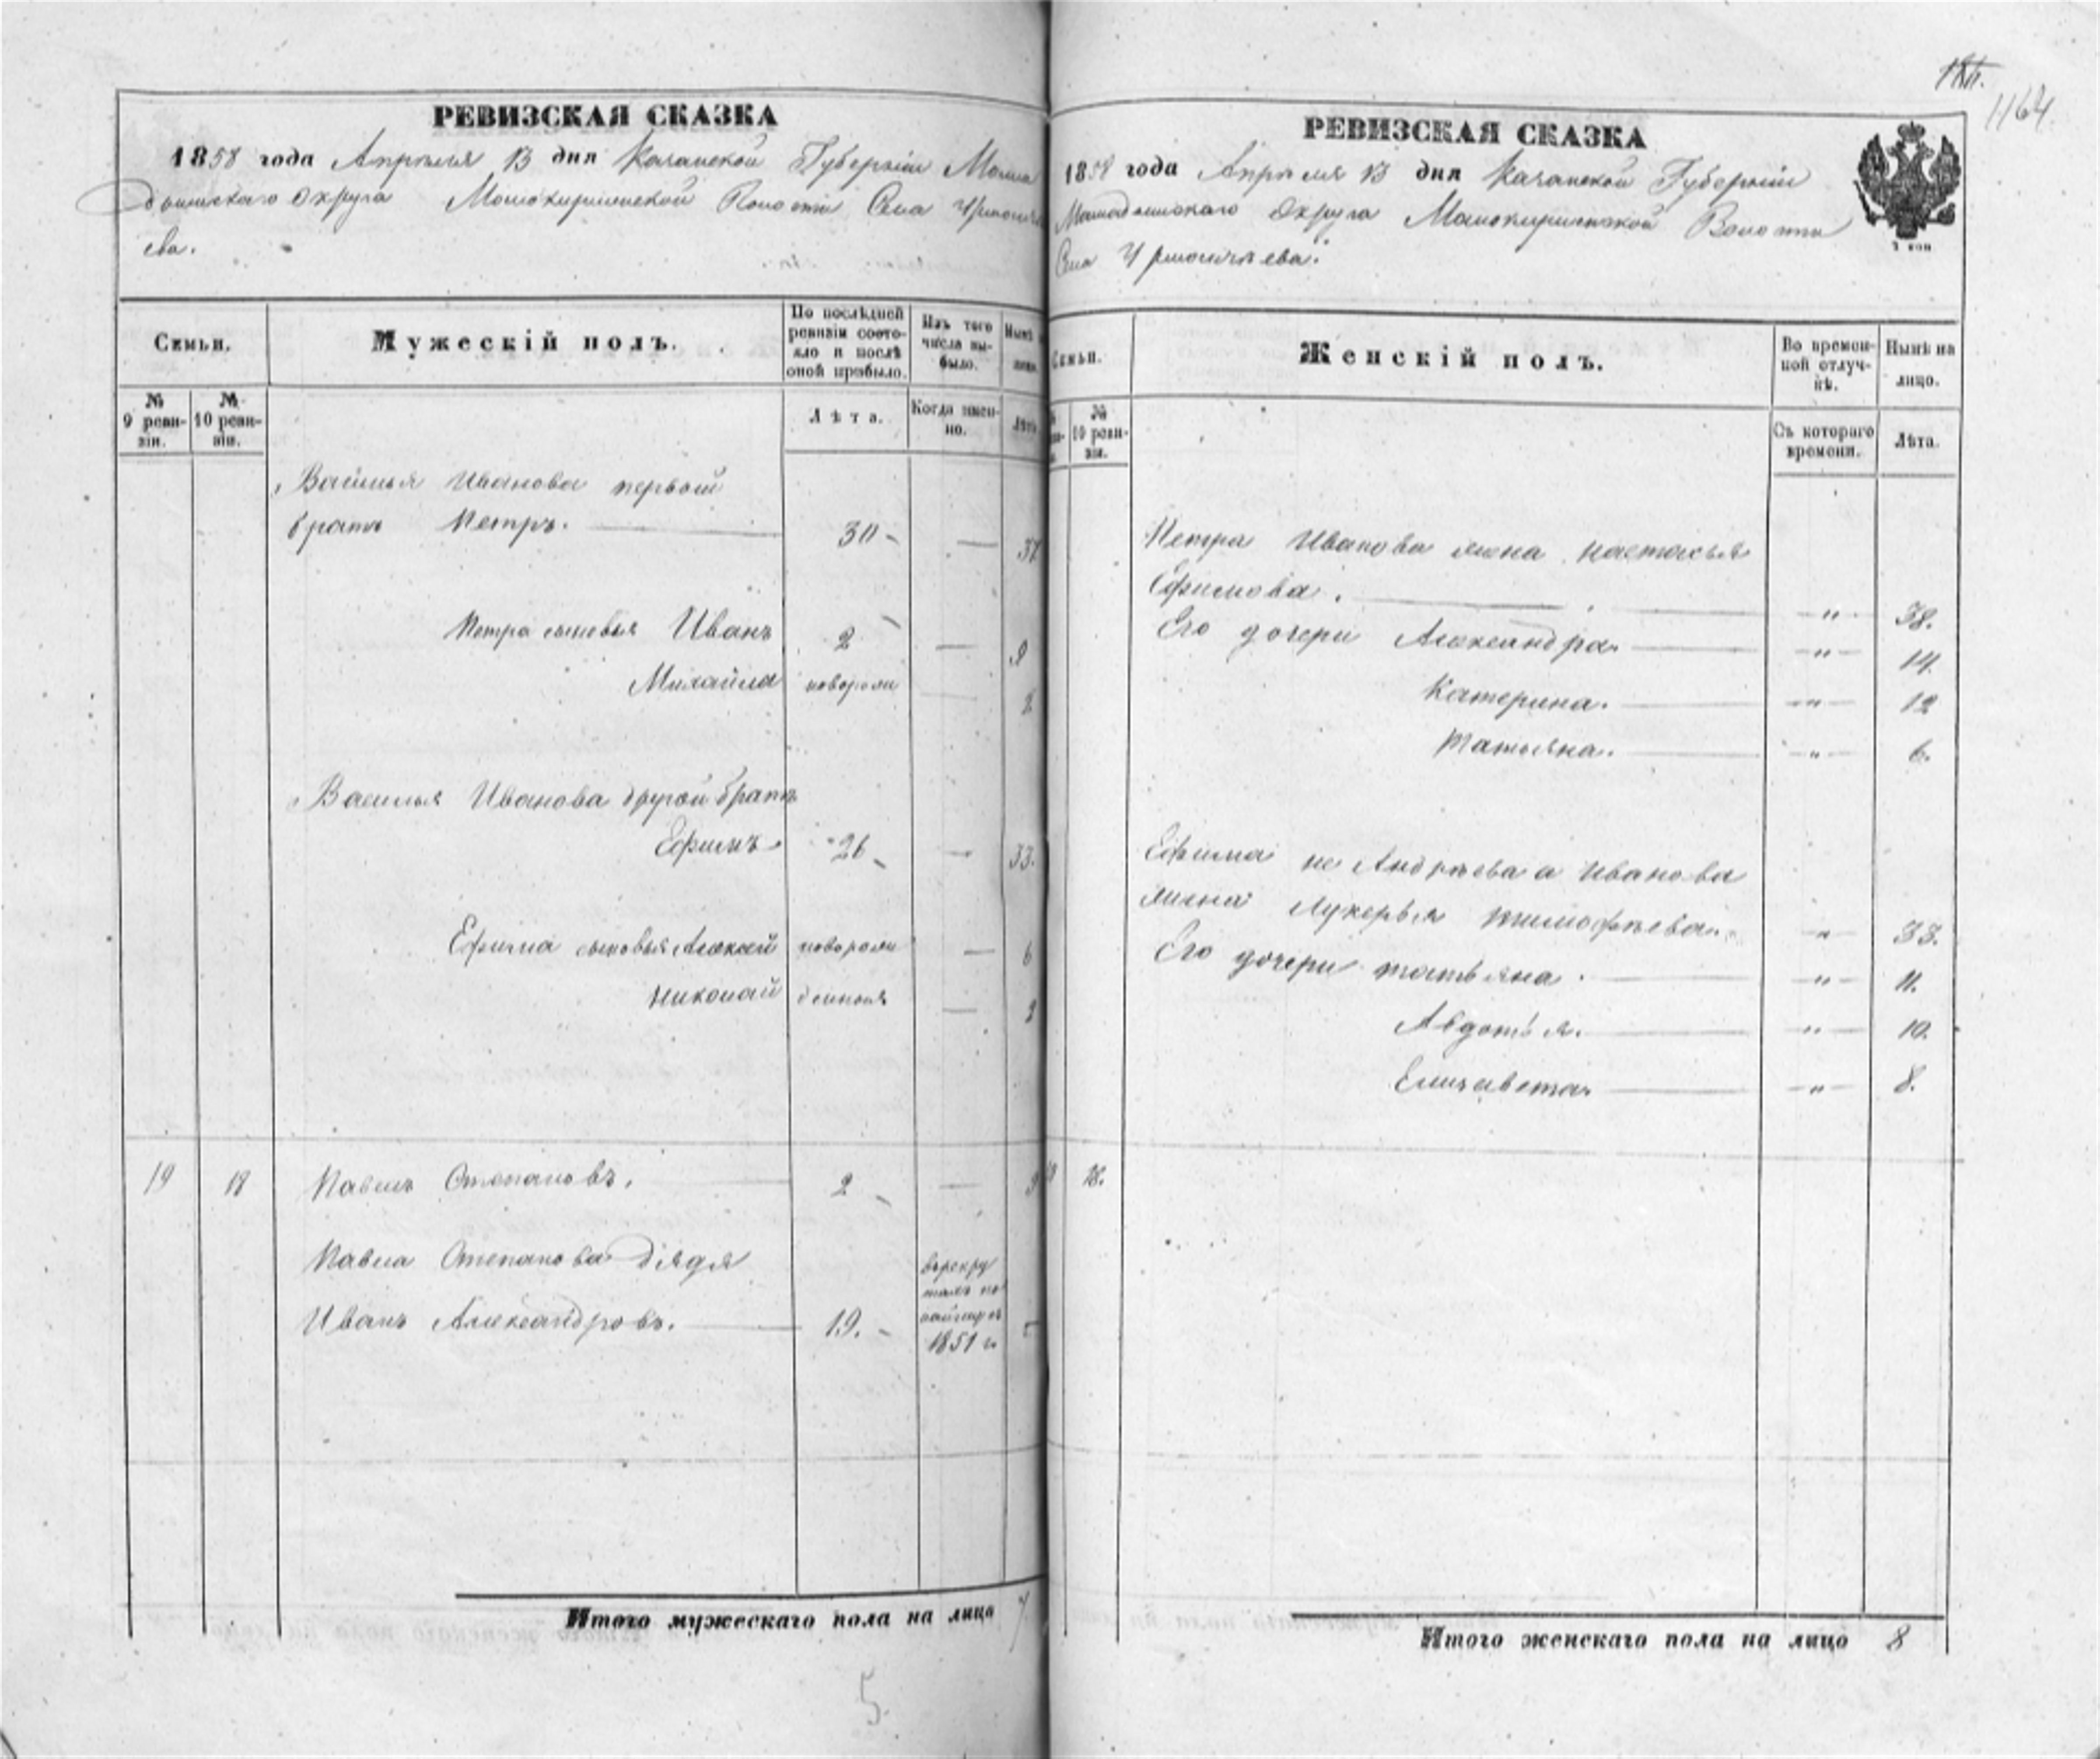 РЕВИЗСКАЯ СКАЗКА
1858 года Апреля 13 дня Казанской Губернiи Мама
дышскаго Округа Мамокирменской Волости Села Урмонче
ева.
Семьи.
Мужескiй полъ.
По послѣдней ревизiи состо-
яло и послѣ
оной прибыло.
Изъ того
числа вы-
было.
Нынѣ
лицо.
№
9 реви-
зiи.
№
10 реви-
зiи.
Лѣта.
Когда имен-
но.
Лѣта
Василья Иванова первой
братъ Петръ. 30 — 37
Петра сыновья Иванъ 2 — 9
Михайла новорожд — 2
Василья Иванова другой братъ
Ефимъ. 26 — 33.
Ефима сыновья Алексей новорожд — 6
Николай — 2
19 18 Павелъ Степановъ. 2 — 9
Павла Степанова дядя
Иванъ Александровъ. 19. —
въ рекру
1851 г.
Итого мужескаго пола на лицо 7.
5
1164
РЕВИЗСКАЯ СКАЗКА
1858 года Апреля 13 дня Казанской Губернiи
Мамадышскаго Округа Мамокирменской Волости
Села Урмончеева.
Семьи.
Женскiй полъ.
Во времен-
ной отлуч-
кѣ.
Нынѣ на
лицо.
№
10 реви-
зiи.
Съ котораго
времени.
Лѣта.
Петра Иванова жена Настасья
Ефимова. — " — 38.
Его дочери Александра. — " — 14.
Катерина. — " — 12
Татьяна. — " — 6.
Ефима не Андреева а Иванова
жена Лукерья Тимофѣева. — " — 33.
Его дочери Татьяна. — " — 11.
Авдотья. — " — 10.
Елизавета. — " — 8.
18.
Итого женскаго пола на лицо 8